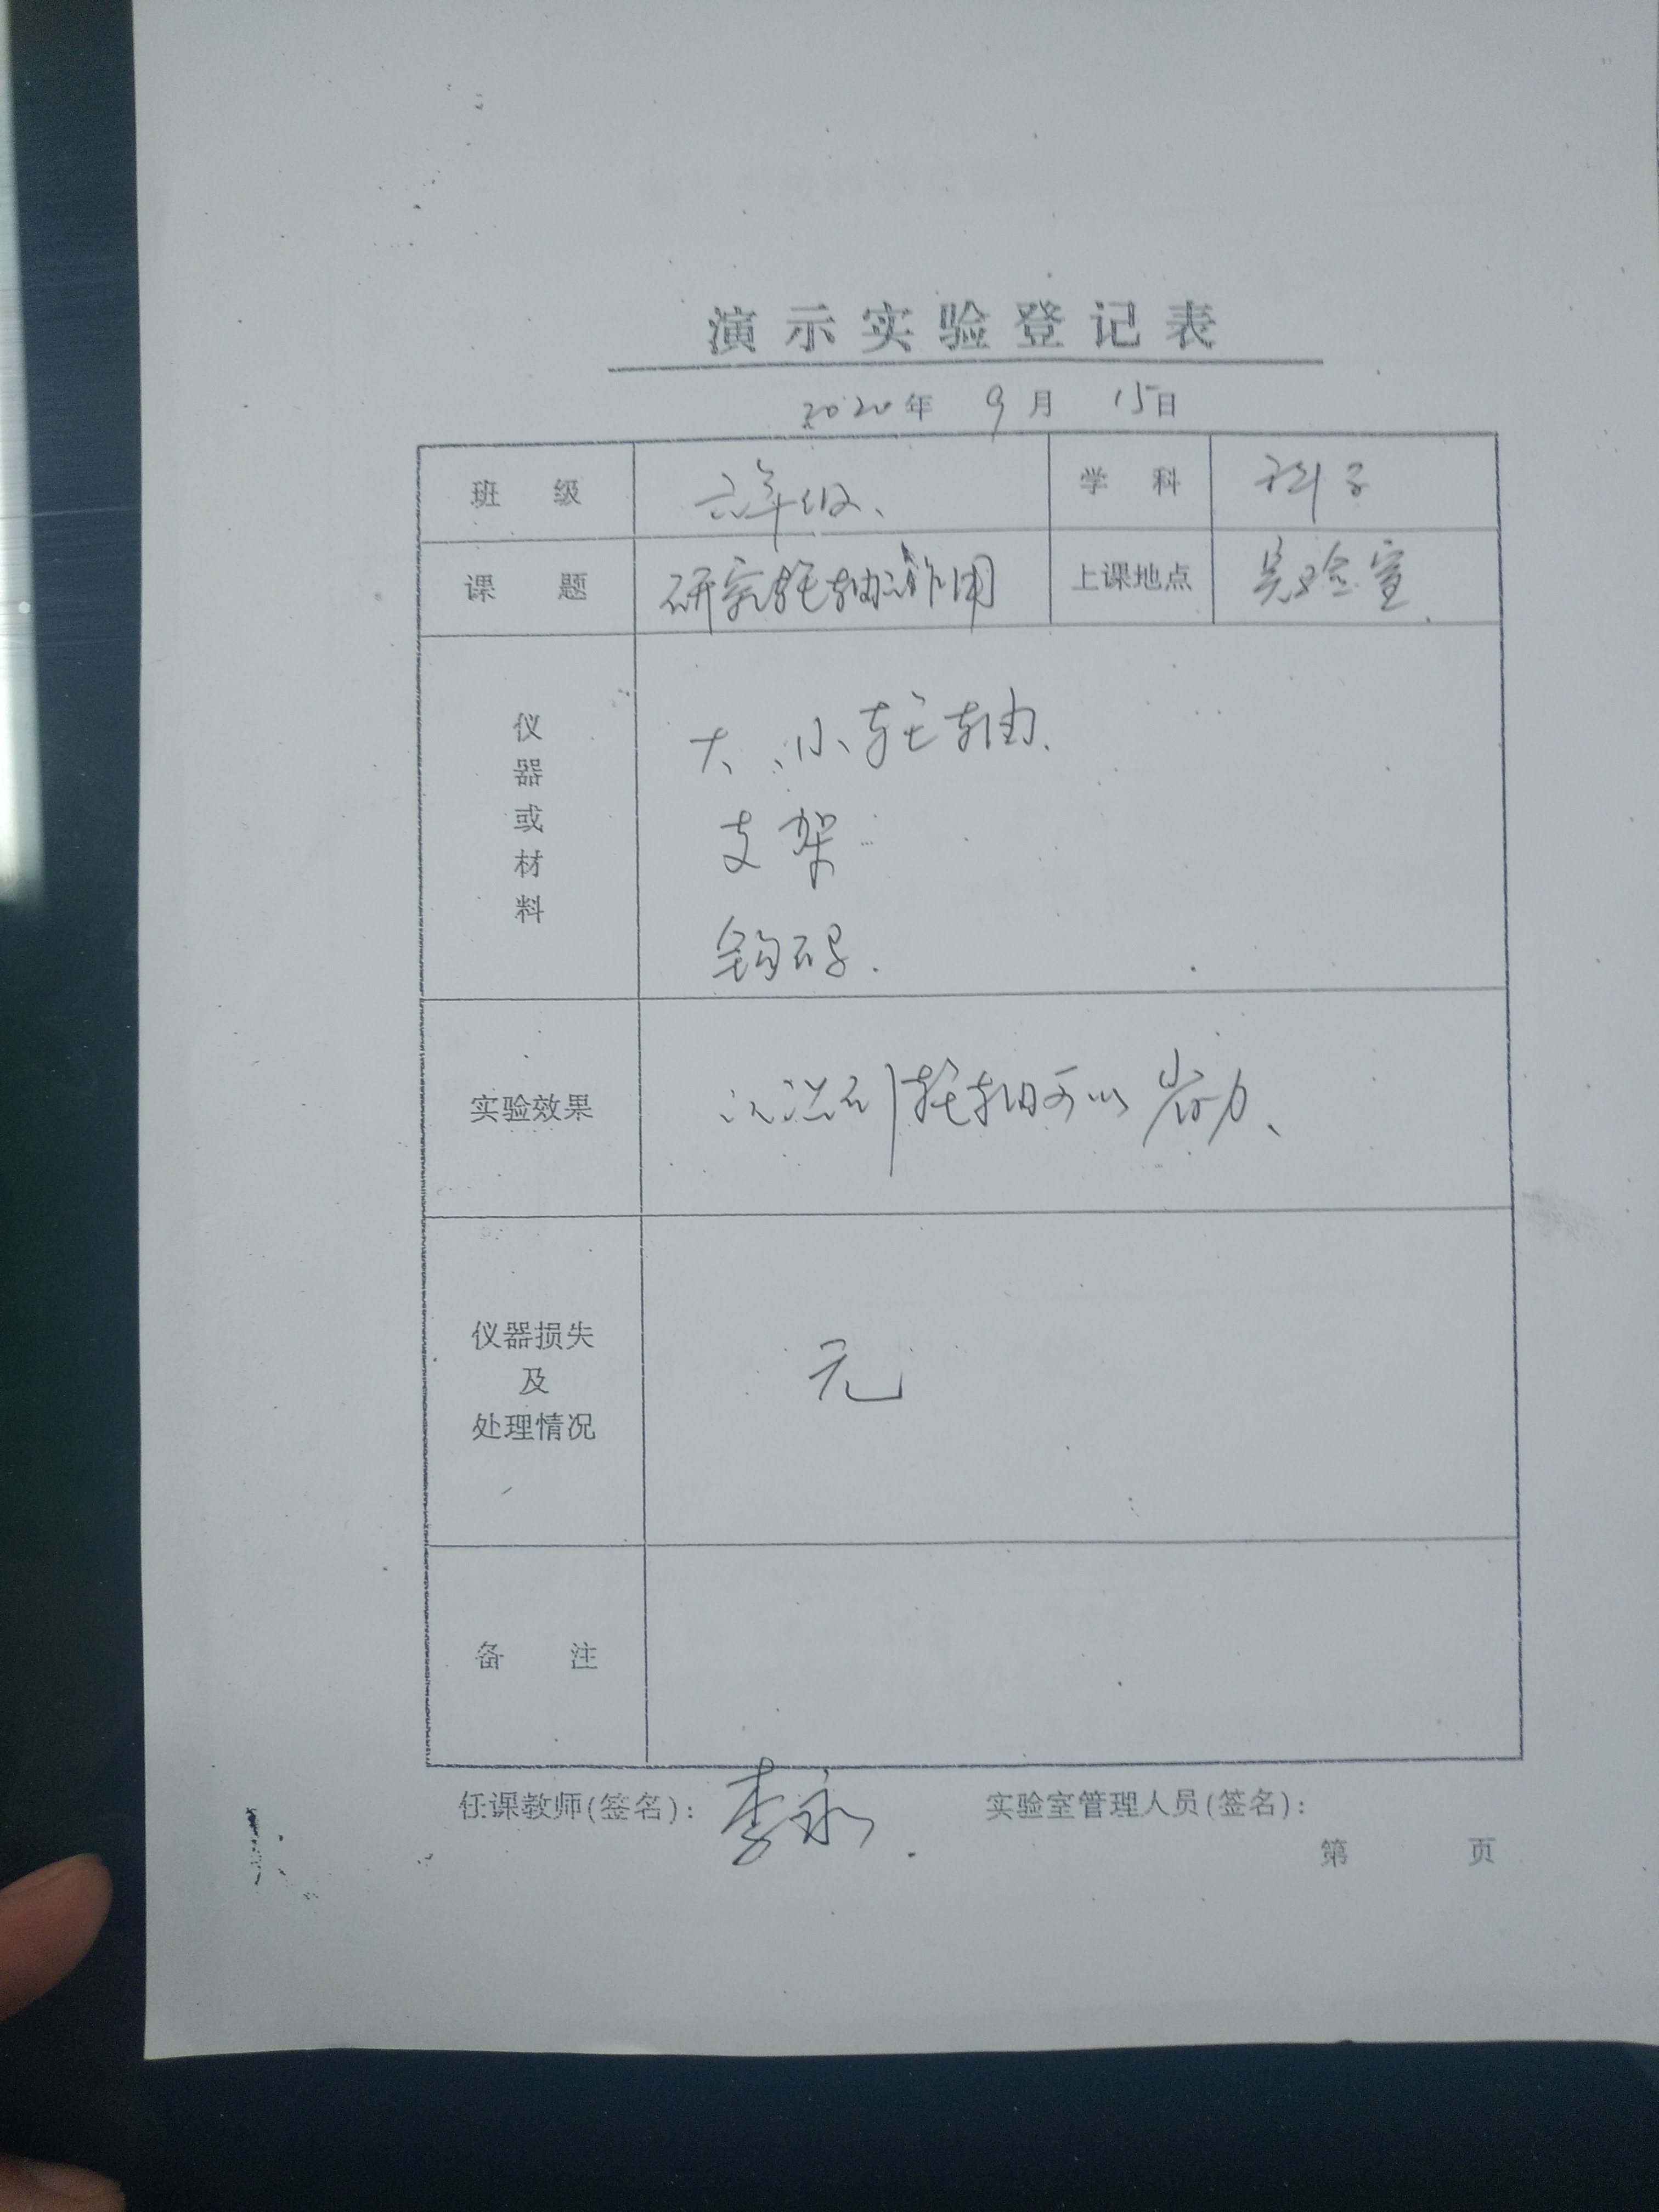 演示实验登记表
2020年 9月 15日
班 级 六年级、 学 科 科学
课 题 研究轮轴的作用 上课地点 实验室.
仪器或材料
大、小轮轴.
支架
钩码.
实验效果 认识到轮轴可以省力、
仪器损失
及
处理情况
无
备 注
任课教师(签名): 李永. 实验室管理人员(签名):
第 页